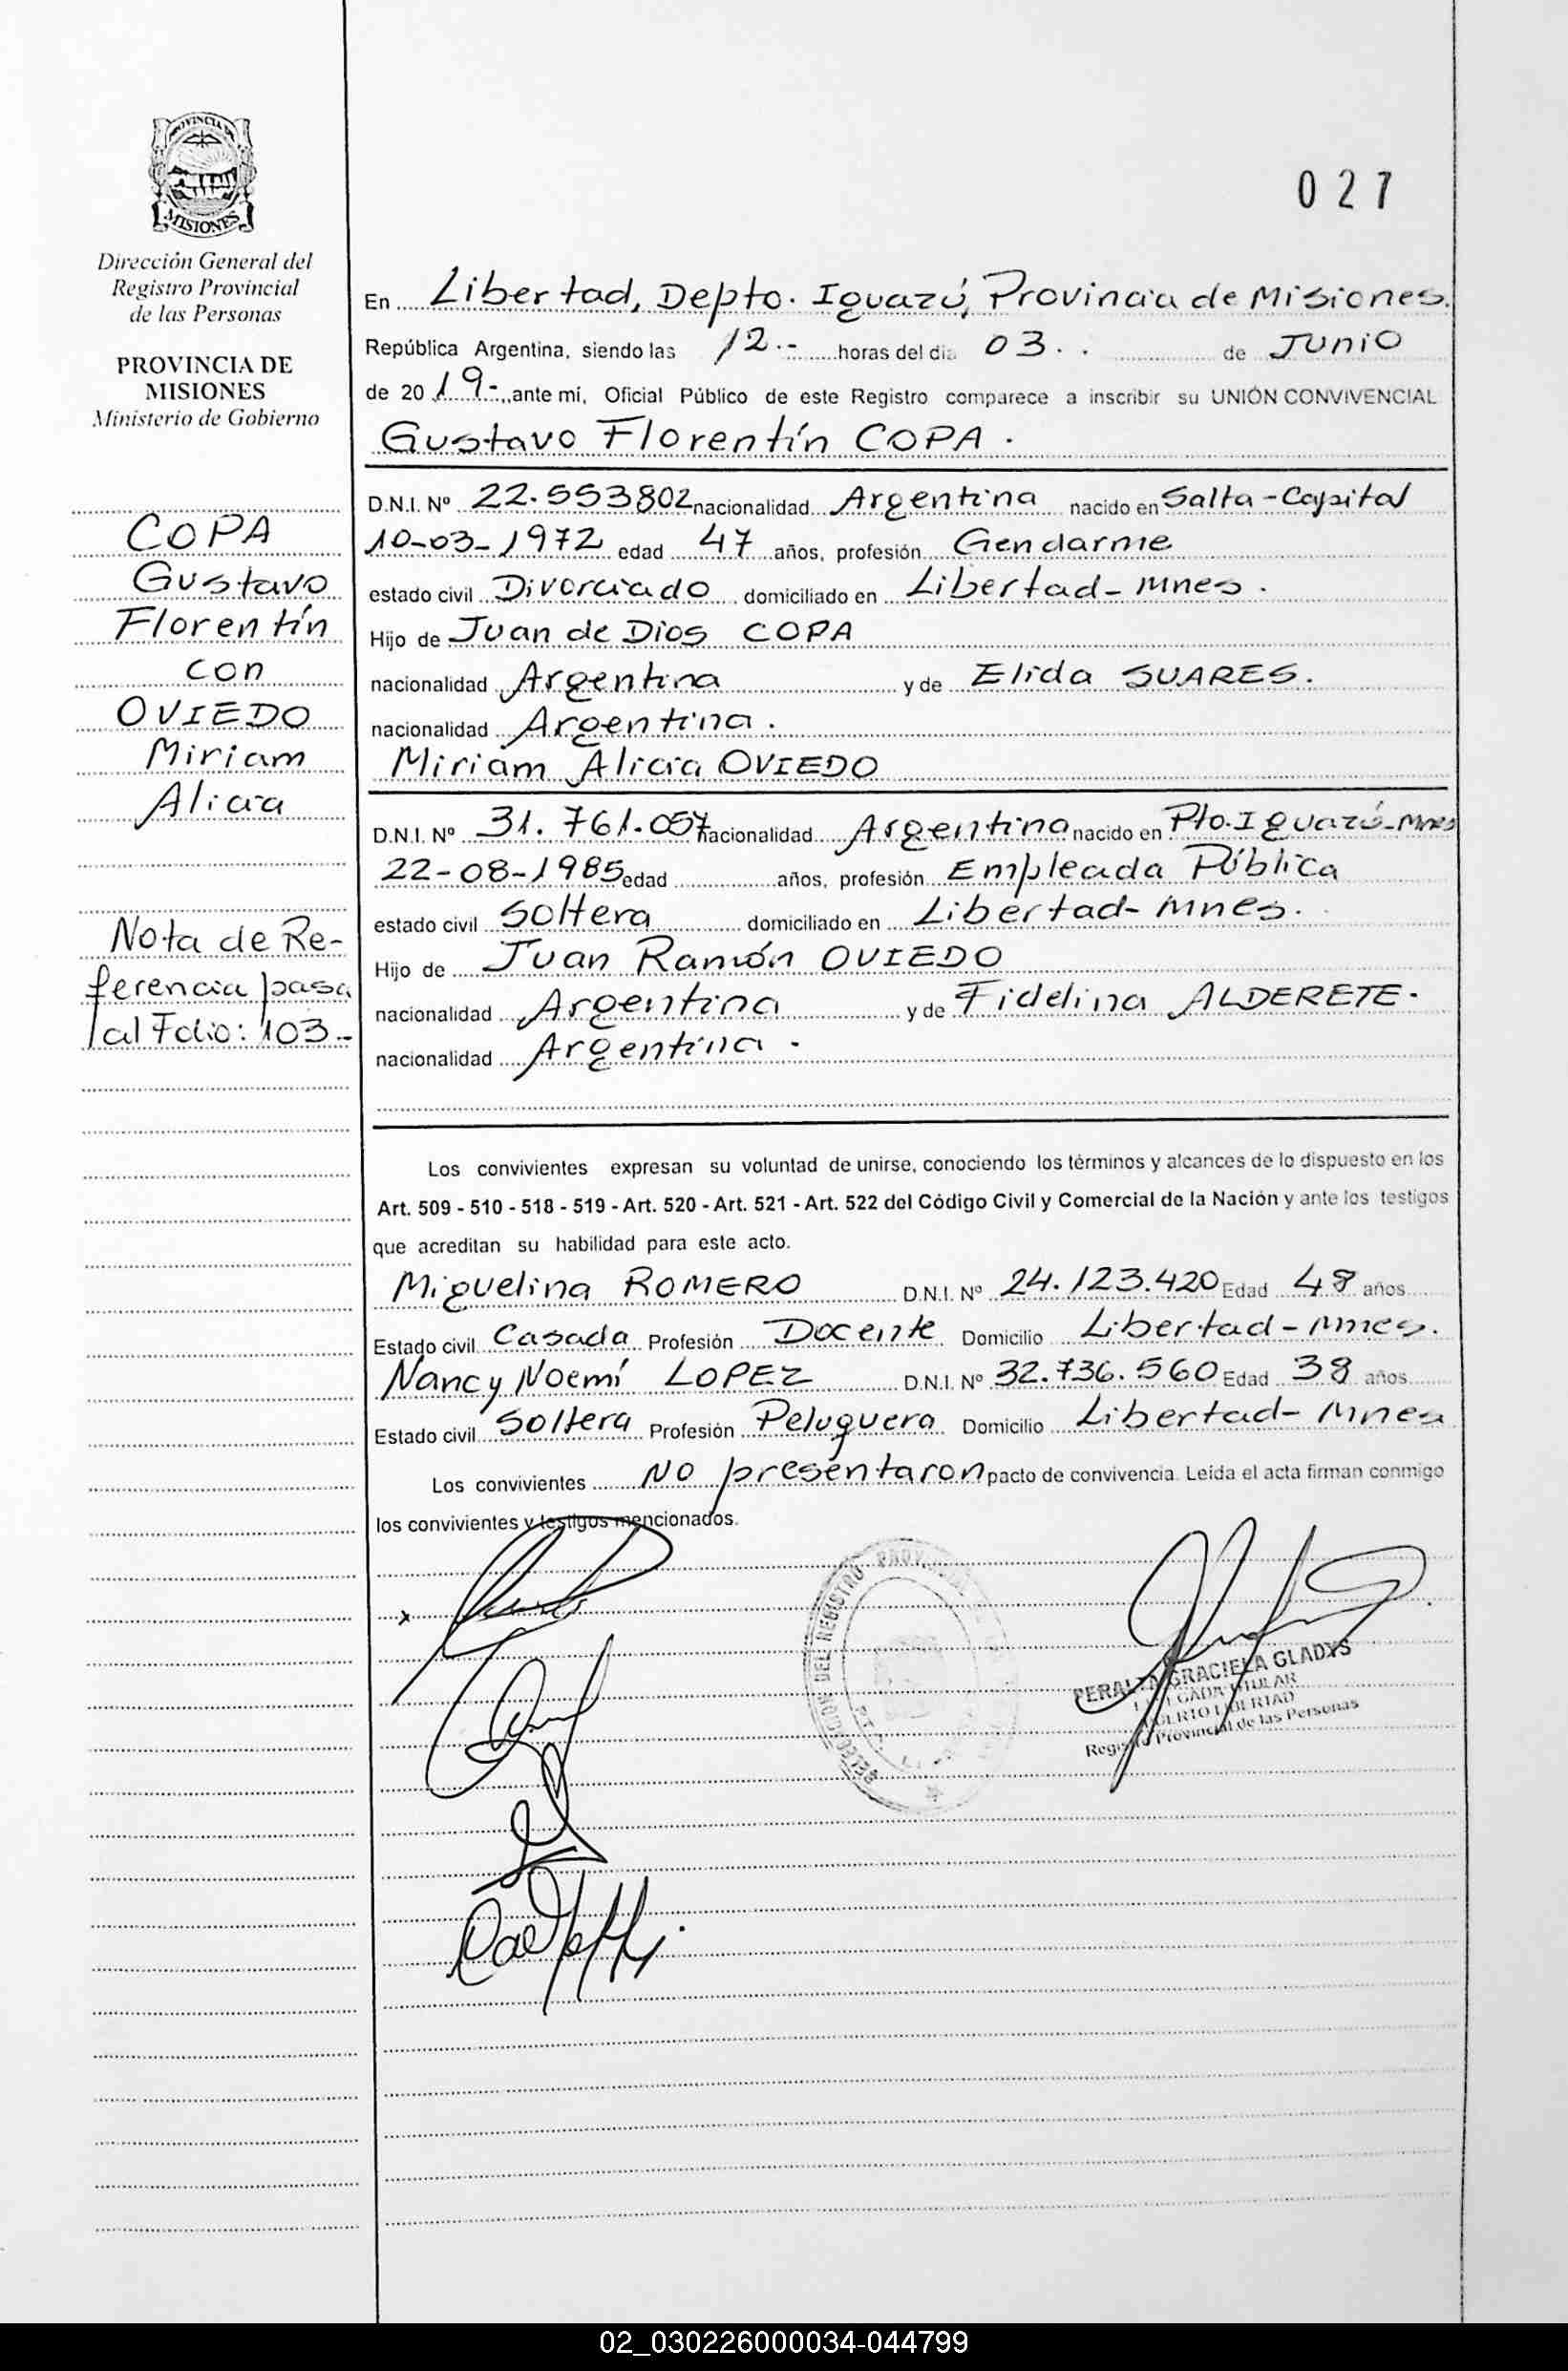 PROVINCIA DE
MISIONES
Dirección General del
Registro Provincial
de las Personas
PROVINCIA DE
MISIONES
Ministerio de Gobierno
COPA
Gustavo
Florentín
con
OVIEDO
Miriam
Alicia
Nota de Re-
ferencia pasa
al Folio: 103.-
027
En Libertad, Depto. Iguazú, Provincia de Misiones.
República Argentina, siendo las 12.- horas del día 03. . de Junio
de 2019-, ante mi, Oficial Público de este Registro comparece a inscribir su UNIÓN CONVIVENCIAL
Gustavo Florentín COPA.
D.N.I. Nº 22.553802 nacionalidad Argentina nacido en Salta-Capital
10-03-1972 edad 47 años, profesión Gendarme
estado civil Divorciado domiciliado en Libertad-Mnes.
Hijo de Juan de Dios COPA
nacionalidad Argentina y de Elida SUARES.
nacionalidad Argentina.
Miriam Alicia OVIEDO
D.N.I. Nº 31.761.057 nacionalidad Argentina nacido en Pto.Iguazú-Mnes
22-08-1985 edad años, profesión Empleada Pública
estado civil Soltera domiciliado en Libertad-Mnes.
Hijo de Juan Ramón OVIEDO
nacionalidad Argentina y de Fidelina ALDERETE.
nacionalidad Argentina.
Los convivientes expresan su voluntad de unirse, conociendo los términos y alcances de lo dispuesto en los
Art. 509 - 510 - 518 - 519 - Art. 520 - Art. 521 - Art. 522 del Código Civil y Comercial de la Nación y ante los testigos
que acreditan su habilidad para este acto.
Miguelina ROMERO D.N.I. Nº 24.123.420 Edad 48 años
Estado civil Casada Profesión Docente Domicilio Libertad-Mnes.
Nancy Noemí LOPEZ D.N.I. Nº 32.736.560 Edad 38 años
Estado civil Soltera Profesión Peluquera Domicilio Libertad-Mnes
Los convivientes NO presentaron pacto de convivencia. Leída el acta firman conmigo
los convivientes y testigos mencionados.
DELEGACION DEL REGISTRO
PERALTA GRACIELA GLADYS
DELEGADA TITULAR
PUERTO LIBERTAD
Registro Provincial de las Personas
02_030226000034-044799